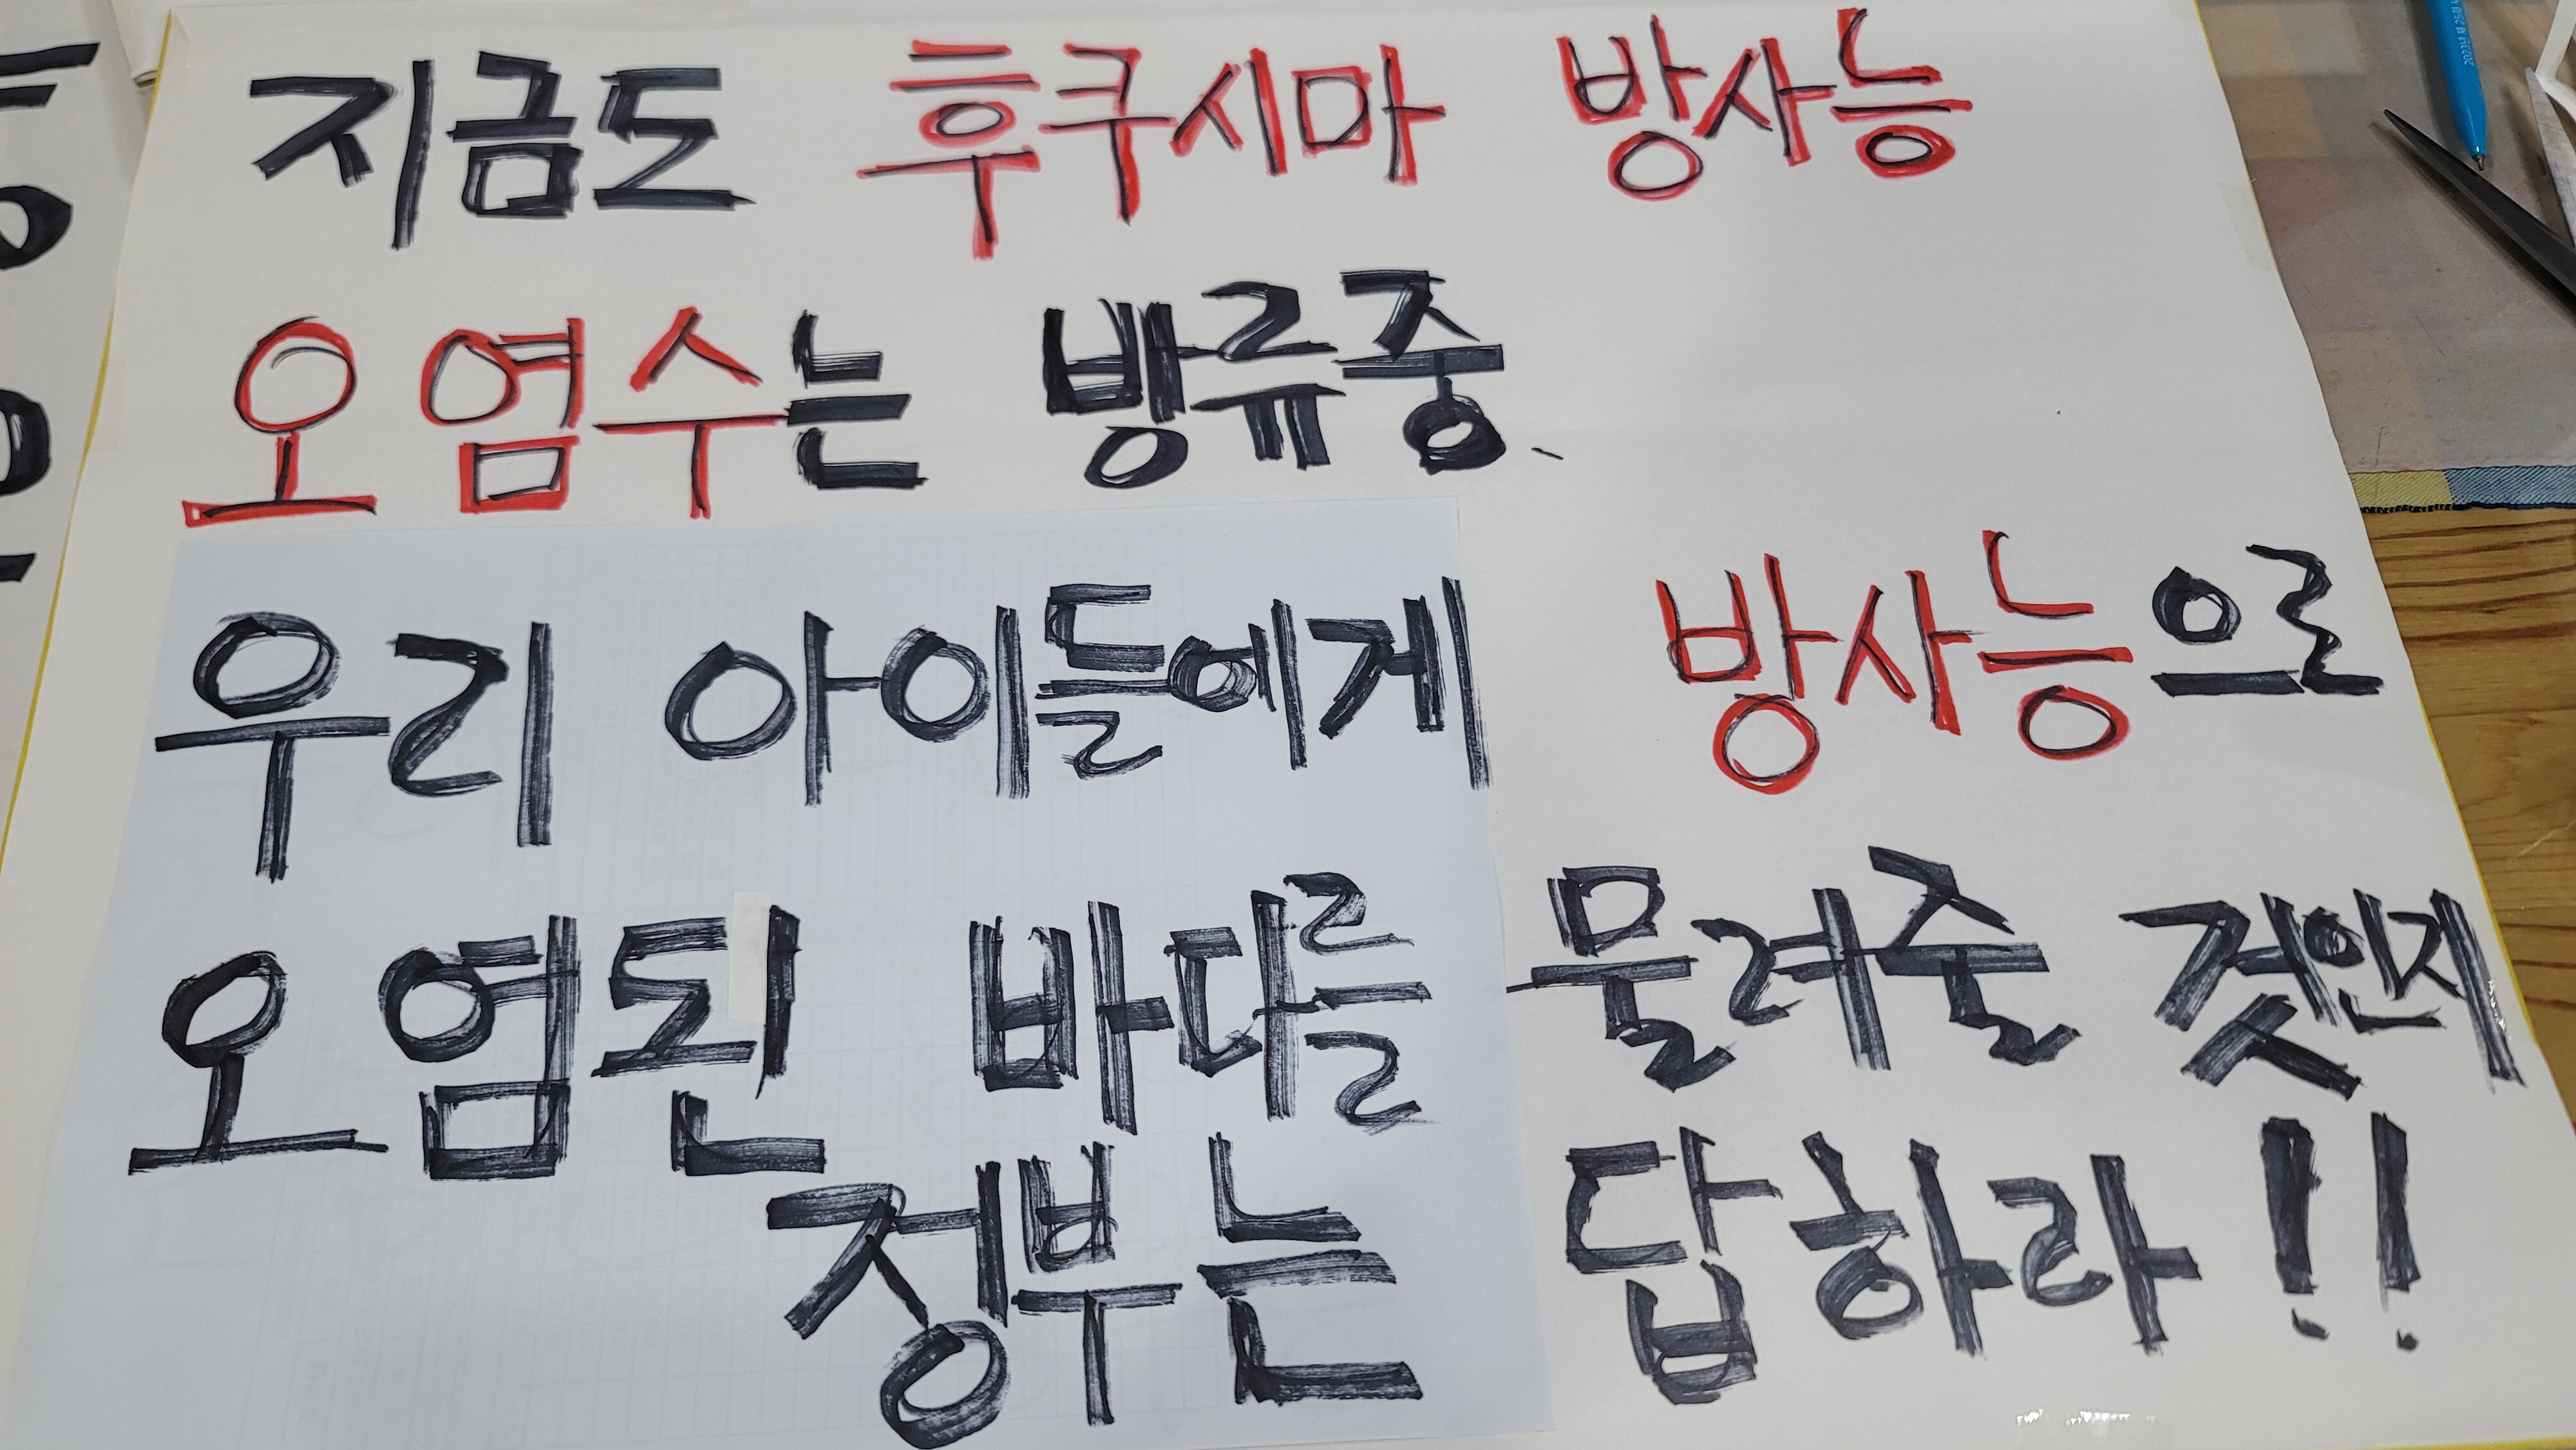 지금도 후쿠시마 방사능
오염수는 방류중
우리 아이들에게 방사능으로
오염된 바다를 물려줄 것인지
정부는 답하라!!